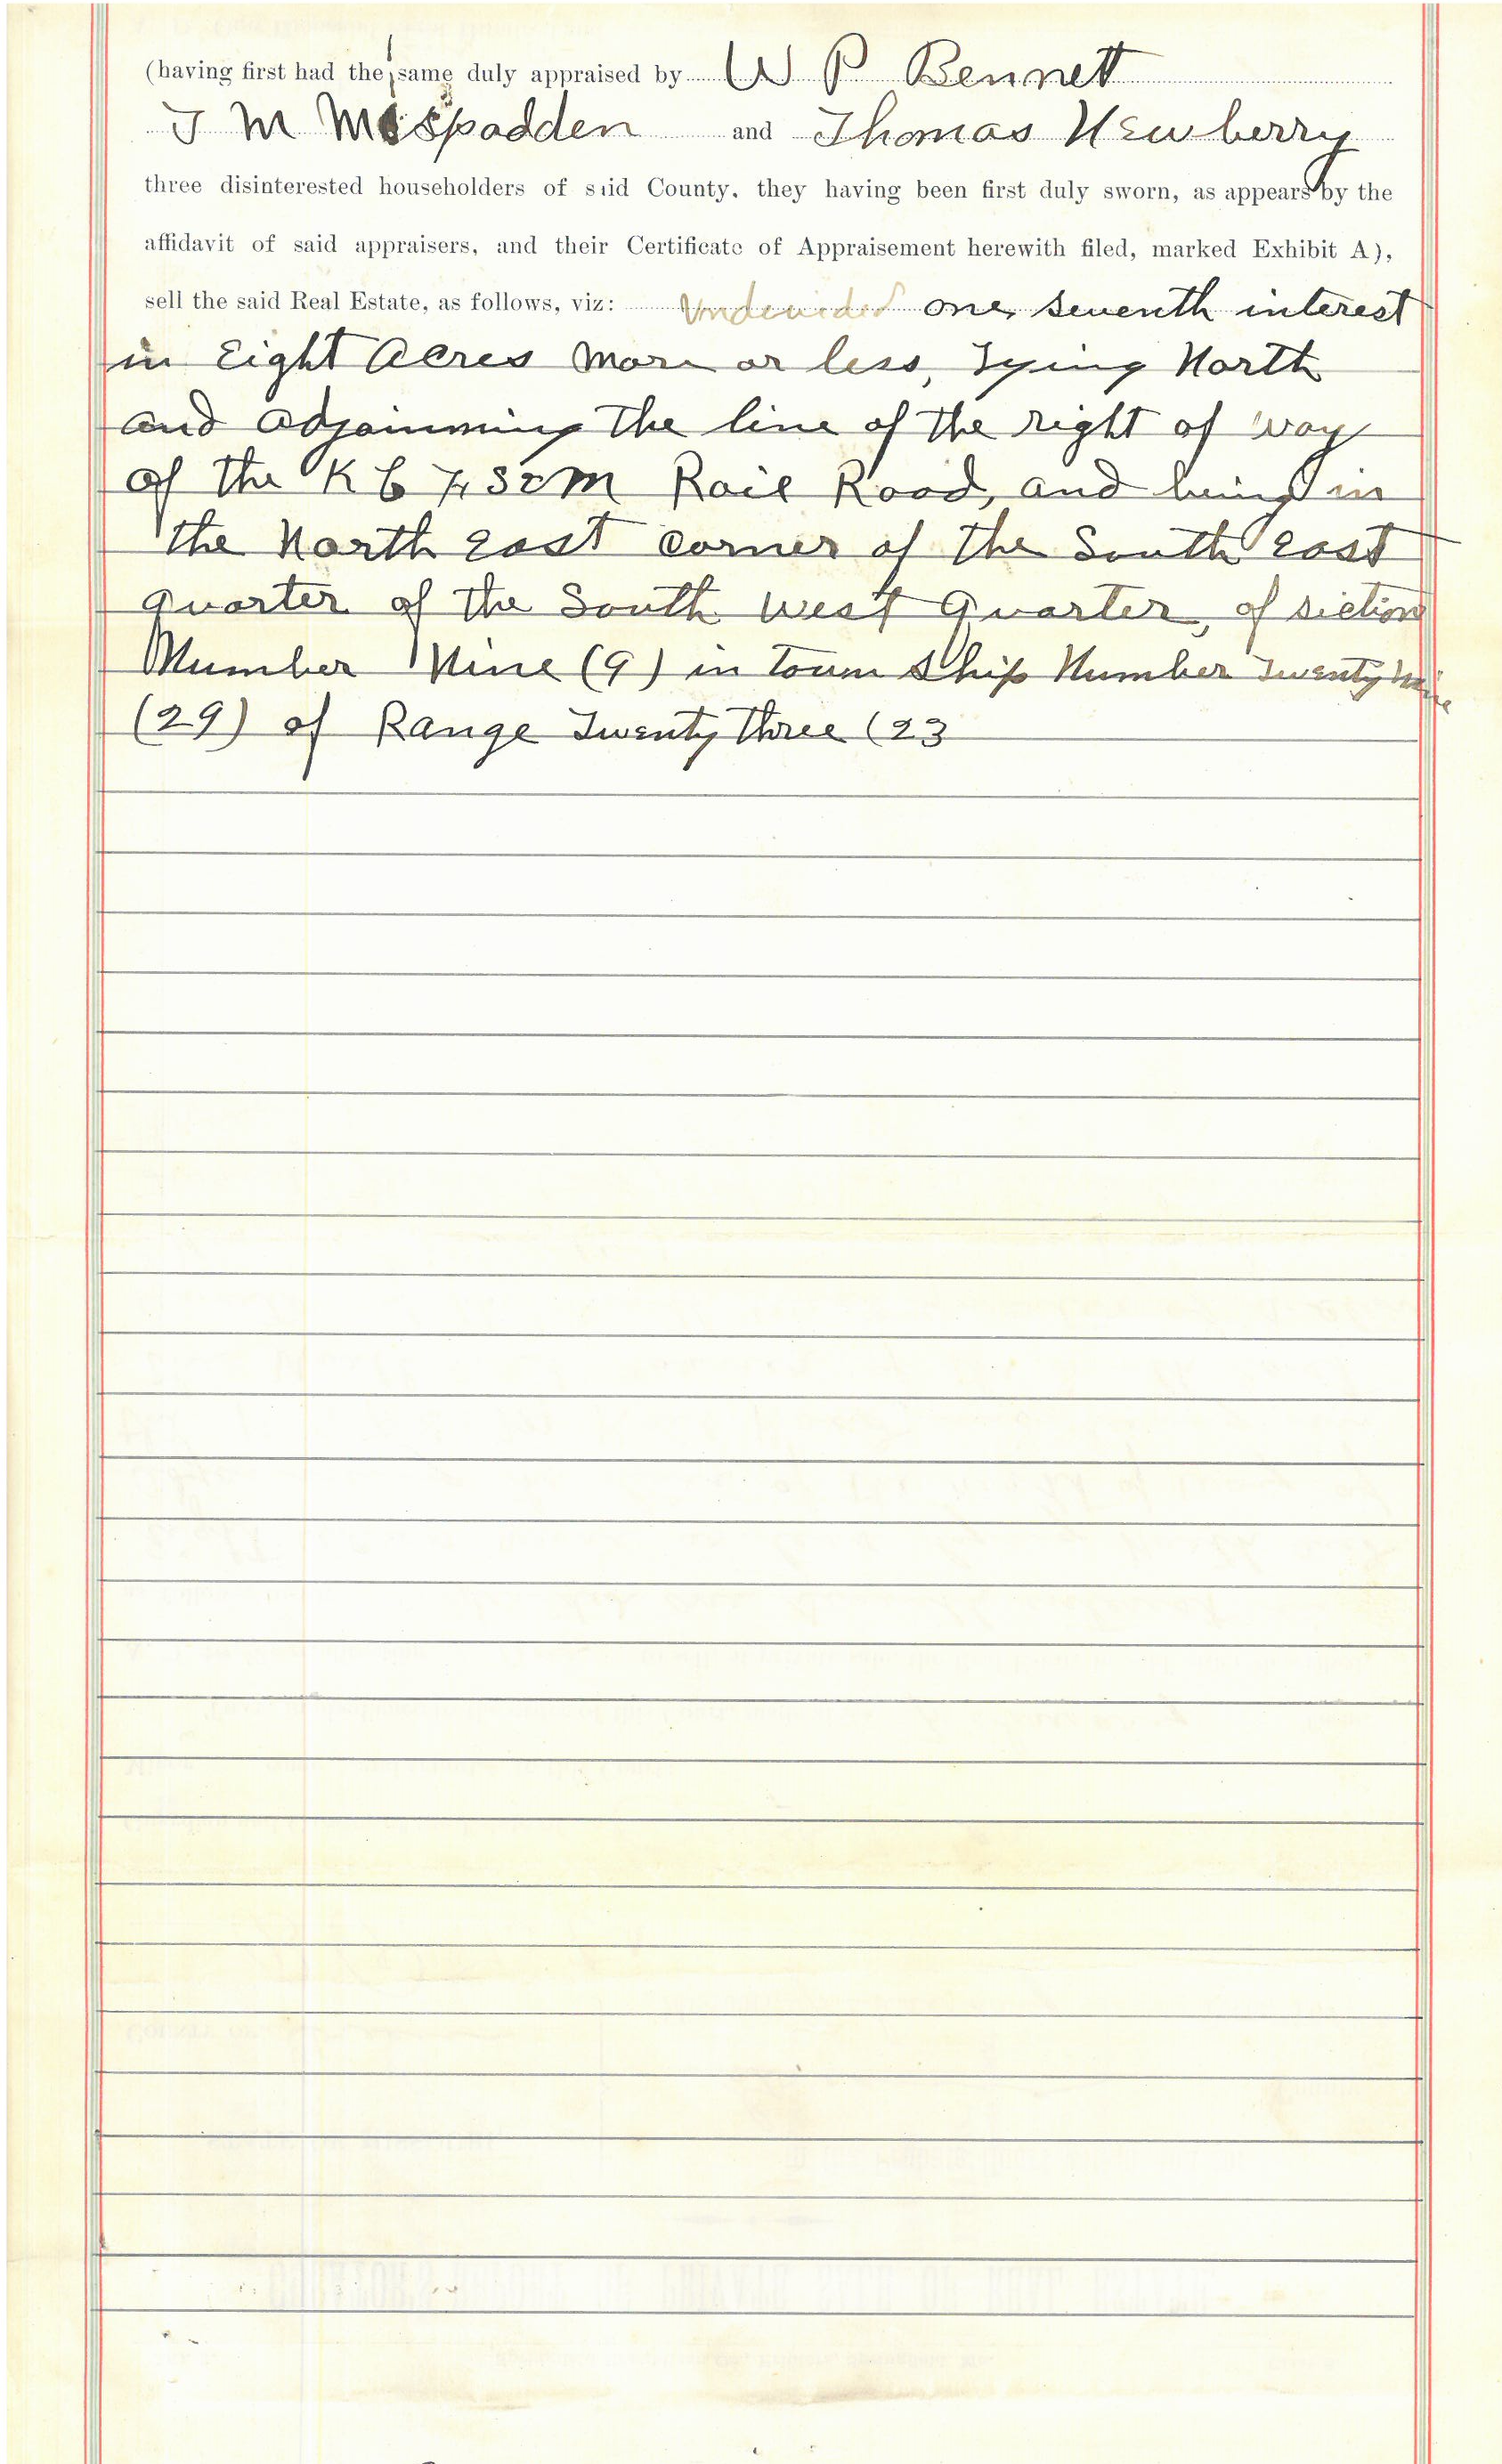 (having first had the same duly appraised by W P Bennett
T M McSpadden and Thomas Newberry
three disinterested householders of said County, they having been first duly sworn, as appears by the
affidavit of said appraisers, and their Certificate of Appraisement herewith filed, marked Exhibit A),
sell the said Real Estate, as follows, viz: Undevided one seventh interest
in Eight Acres More or less, Lying North
and adjoinning the line of the right of way
of the K C Ft S & M Rail Road, and being in
the North east corner of the South east
quarter of the South west quarter, of section
Number Nine (9) in town ship Number Twenty Nine
(29) of Range Twenty three (23